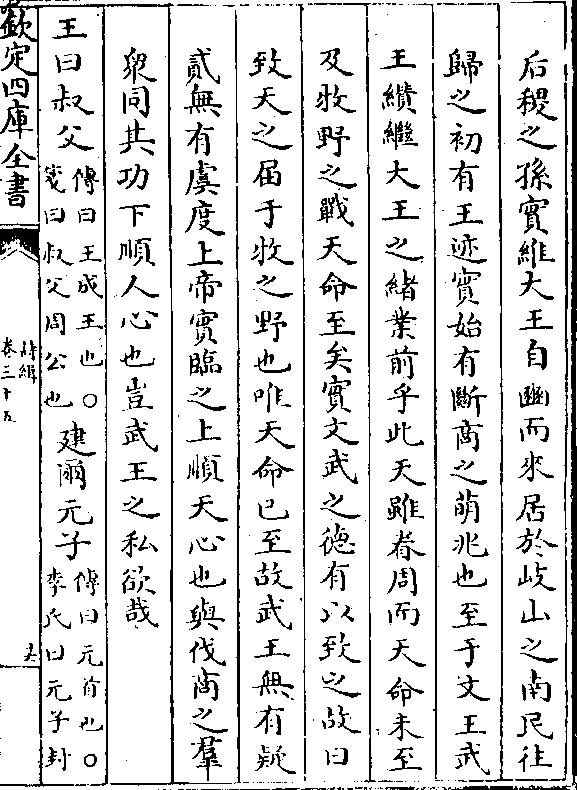 后稷之孫實維大王自豳而來居於岐山之南民往
歸之初有王迹實始有斷商之萌兆也至于文王武
王纘繼大王之緒業前乎此天雖眷周而天命未至
及牧野之戰天命至矣實文武之德有以致之故曰
致天之届于牧之野也唯天命已至故武王無有疑
貳無有虞度上帝實臨之上順天心也與伐商之羣
衆同其功下順人心也豈武王之私欲哉
王曰叔父傳曰王成王也○箋曰叔父周公也建爾元子傳曰元首也○李氏曰元子封
欽定四庫全書
詩緝
卷三十五